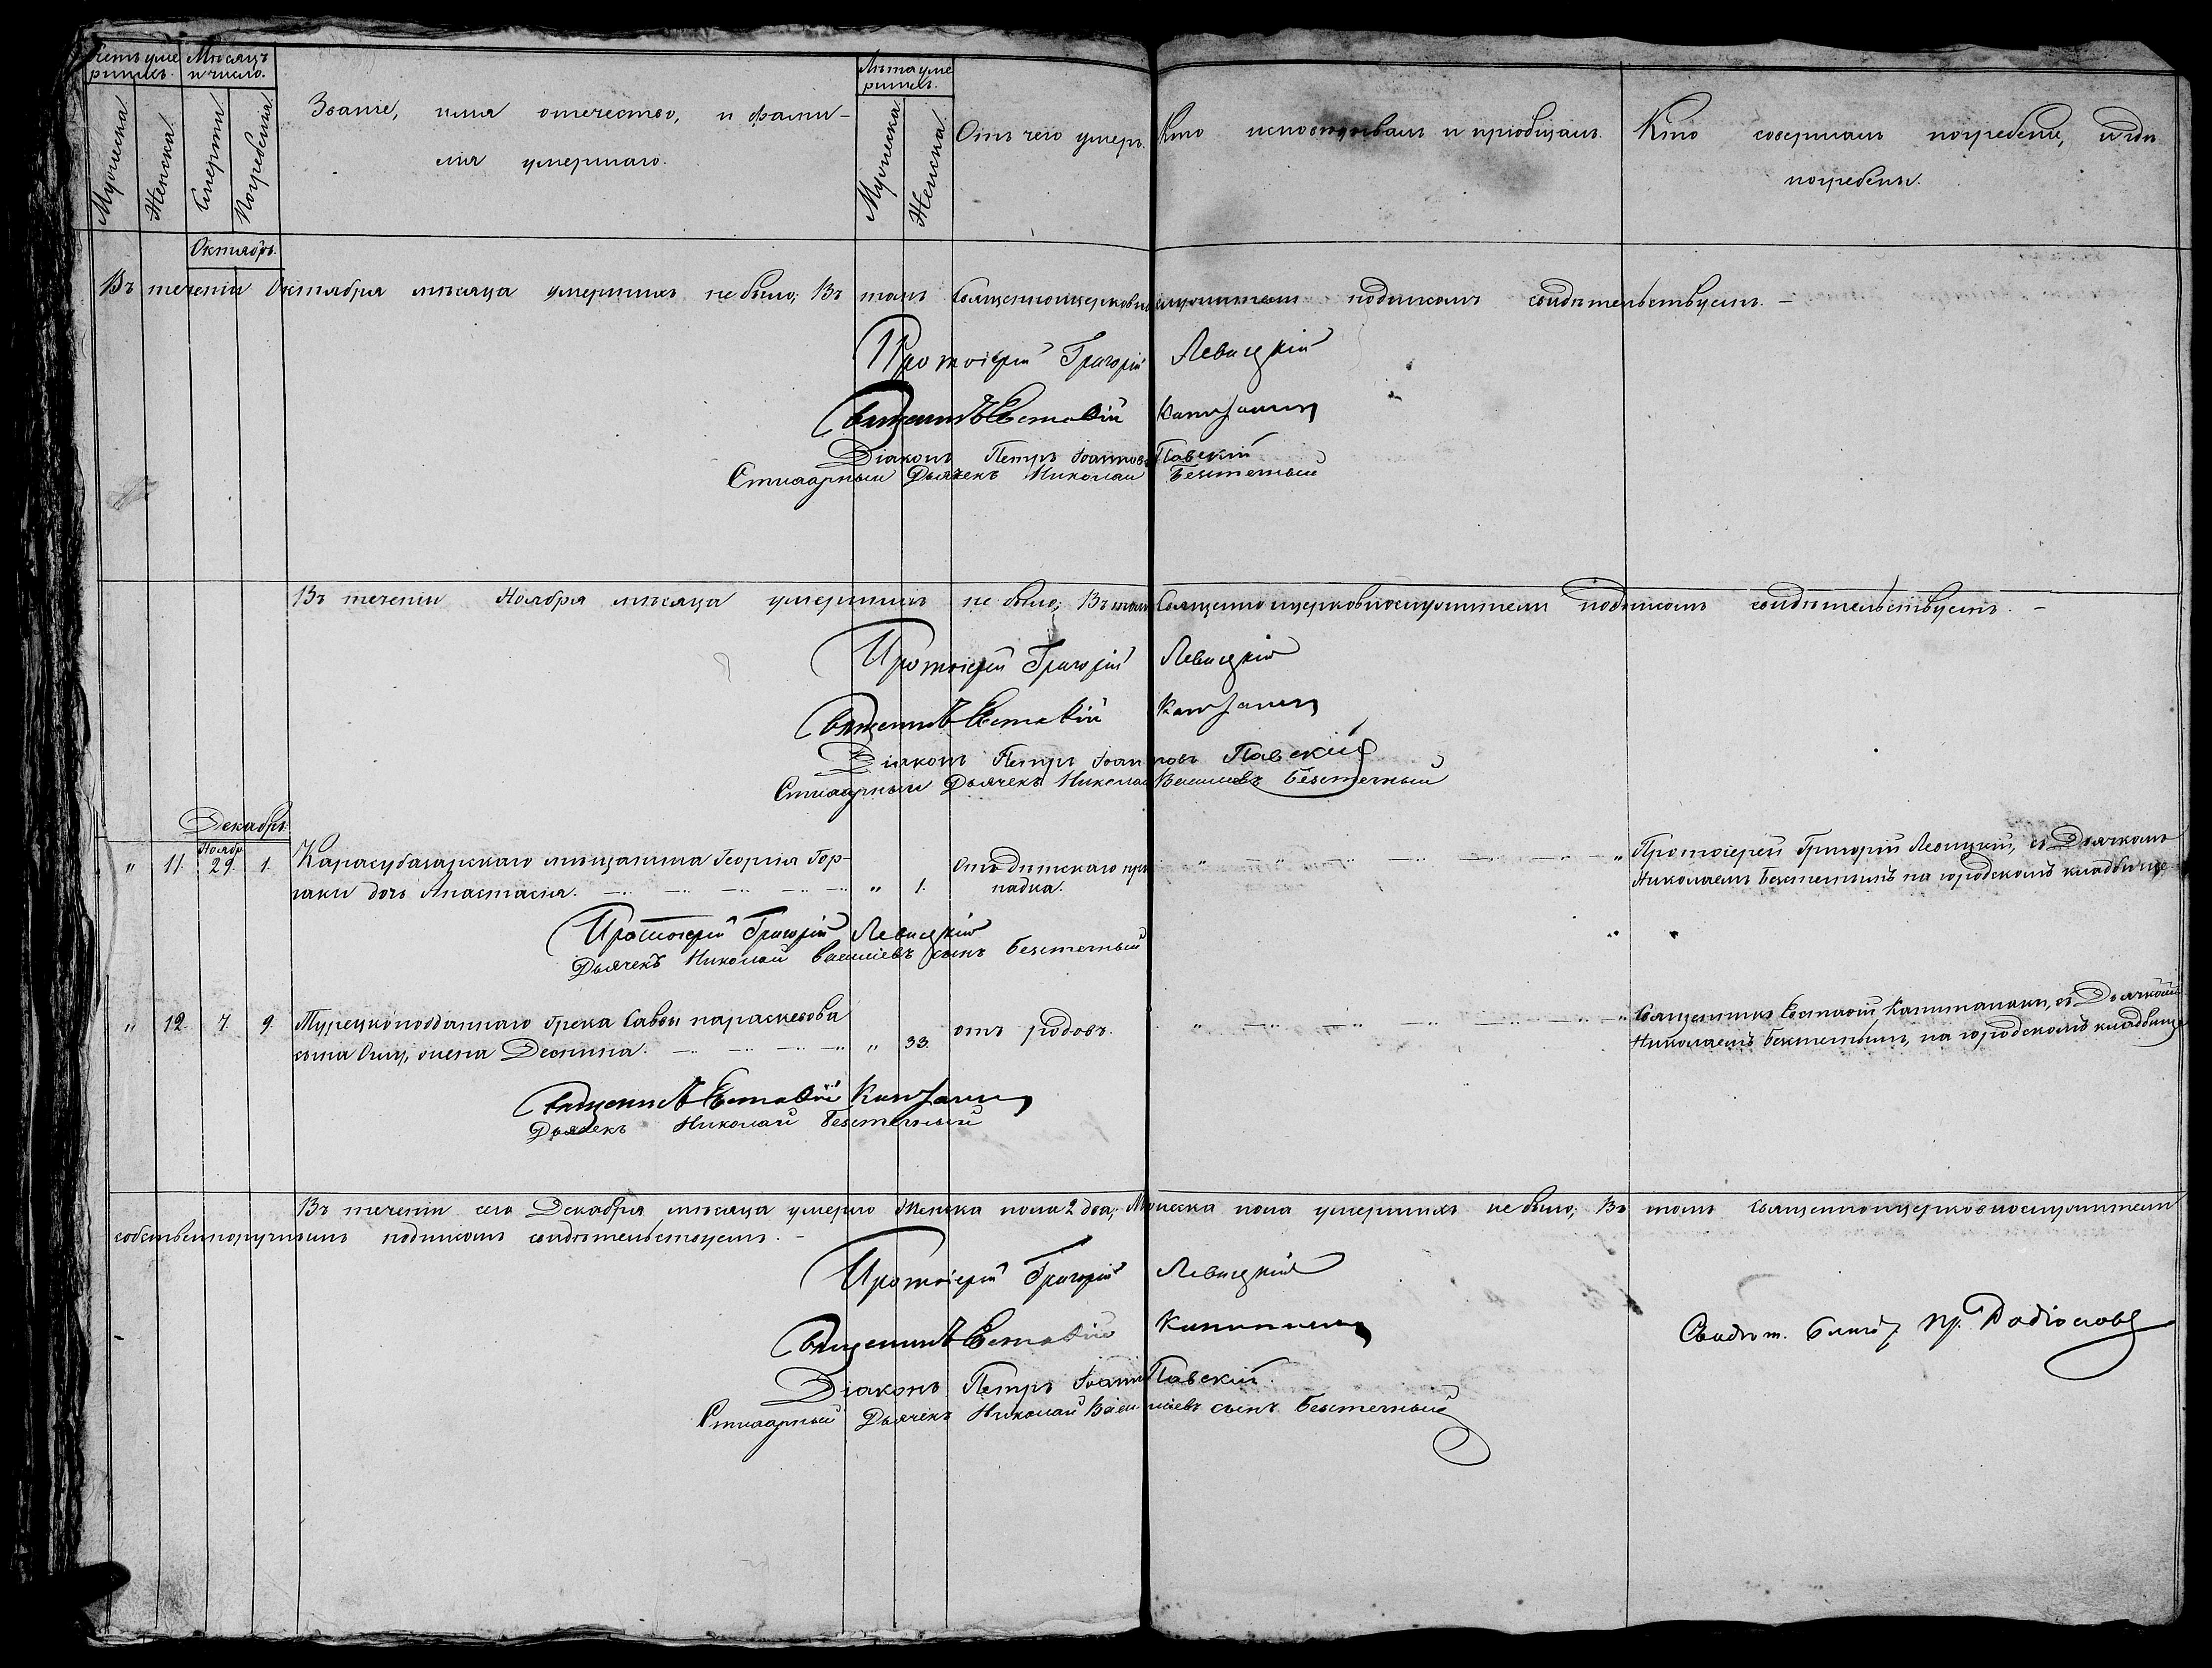 Счетъ уме
ршихъ.
Мѣсяцъ
и число.
Мужеска
Женска.
Смерти
Погребенія
Званіе, имя отечество, и фами-
лія умершаго.
Лѣта уме
ршихъ.
Мужеска
Женска.
Отъ чего умеръ.
Кто исповѣдывалъ и пріобщалъ.
Кто совершалъ погребеніе, и гдѣ
погребены.
Октябрь.
Въ теченіи Октября мѣсяца умершихъ не было; Въ томъ Священноцерковнослужители подписомъ свидѣтельствуемъ. —
Протоіерей Григорій Левицкій
Священникъ Евстафій
Діаконъ Петръ Іоанновъ Павскій
Стихарный Дьячекъ Николай Безстетный
Въ теченіи Ноября мѣсяца умершихъ не было; Въ томъ Священноцерковнослужители подписомъ свидѣтельствуемъ. —
Протоіерей Григорій Левицкій
Священникъ Евстафій
Діаконъ Петръ Іоанновъ Павскій
Стихарный Дьячекъ Николай Васильевъ Безстетный
Декабрь
Ноябр.
„ 11. 29. 1. Карасубазарскаго мѣщанина Георгія Гор-
„ 1. Отъ дѣтскаго при
Протоіерей Григорій Левицкій, съ Дьячкомъ
дочь Анастасія.
падка.
Николаемъ Безстетнымъ на городскомъ кладбище
Протоіерей Григорій Левицкій
Дьячекъ Николай Васильевъ сынъ Безстетный
„ 12. 7. 9. Турецкоподданнаго грека Саввы параскевова
„ 33. отъ родовъ.
Священникъ Евстафій Капитанаки, съ Дьячкомъ
сына жена Деспина.
Николаемъ Безстетнымъ, на городскомъ кладбище
Священникъ Евстафій
Дьячекъ Николай Безстетный
Въ теченіи сего Декабря мѣсяца умерло Женска пола 2 два; Мужеска пола умершихъ не было; Въ томъ Священноцерковнослужители
собственноручнымъ подписомъ свидѣтельствуемъ. —
Протоіерей Григорій Левицкій
Священникъ Евстафій
Діаконъ Петръ Іоанн Павскій.
Стихарный Дьячекъ Николай Васильевъ сынъ Безстетный
Свидѣт. Благ. пр. Родіоновъ